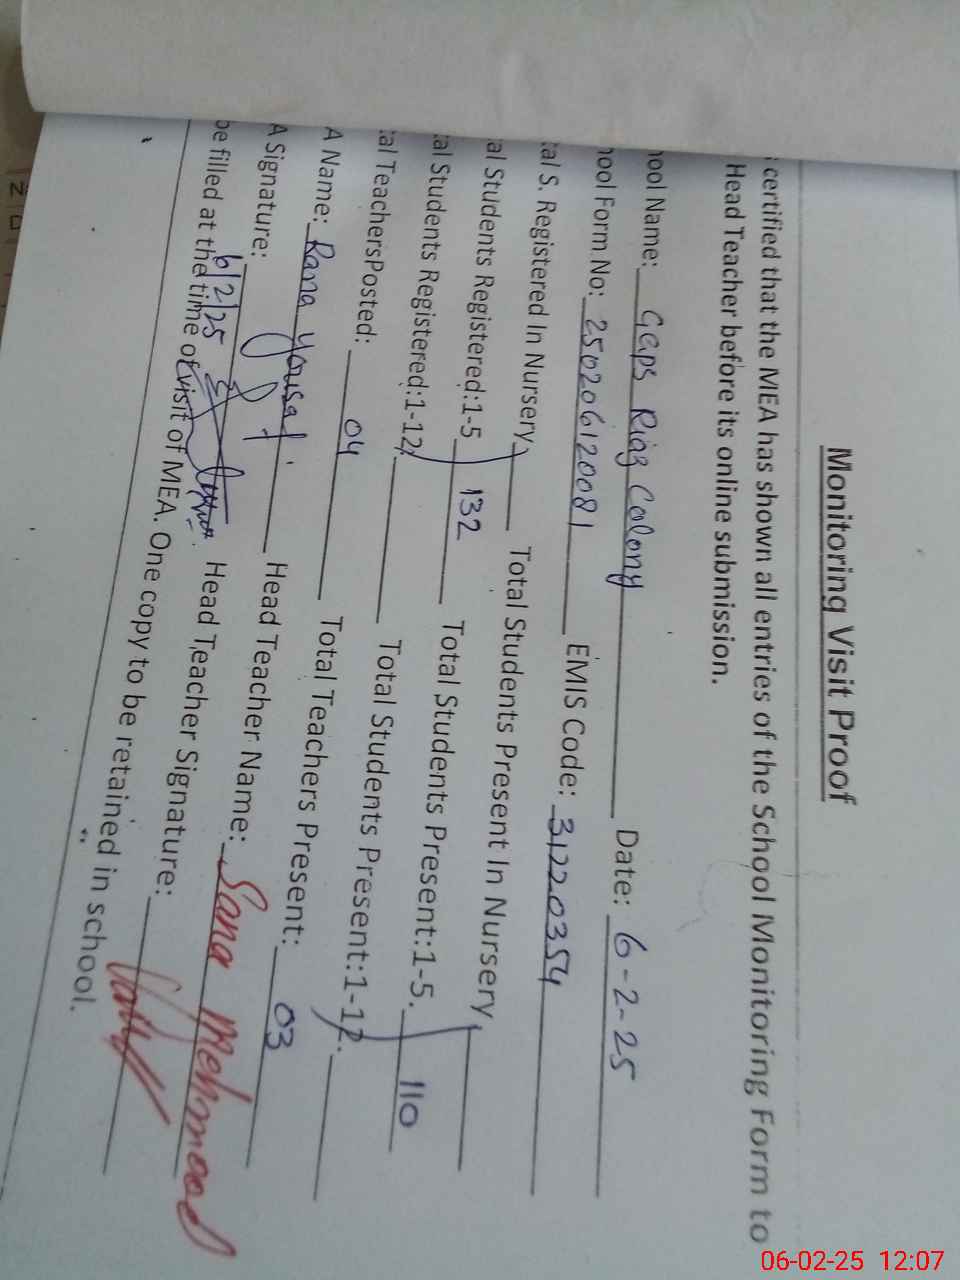 Monitoring Visit Proof
certified that the MEA has shown all entries of the School Monitoring Form to
Head Teacher before its online submission.
ool Name: GGPS Riaz Colony Date: 6-2-25
ool Form No: 250206120081 EMIS Code: 31220354
al S. Registered In Nursery Total Students Present In Nursery
al Students Registered:1-5 132 Total Students Present:1-5. 110
al Students Registered:1-12 Total Students Present:1-12.
al TeachersPosted: 04 Total Teachers Present: 03
A Name: Rana Yousaf Head Teacher Name: Sana Mehmood
A Signature: Head Teacher Signature:
6/2/25
be filled at the time of visit of MEA. One copy to be retained in school.
06-02-25 12:07